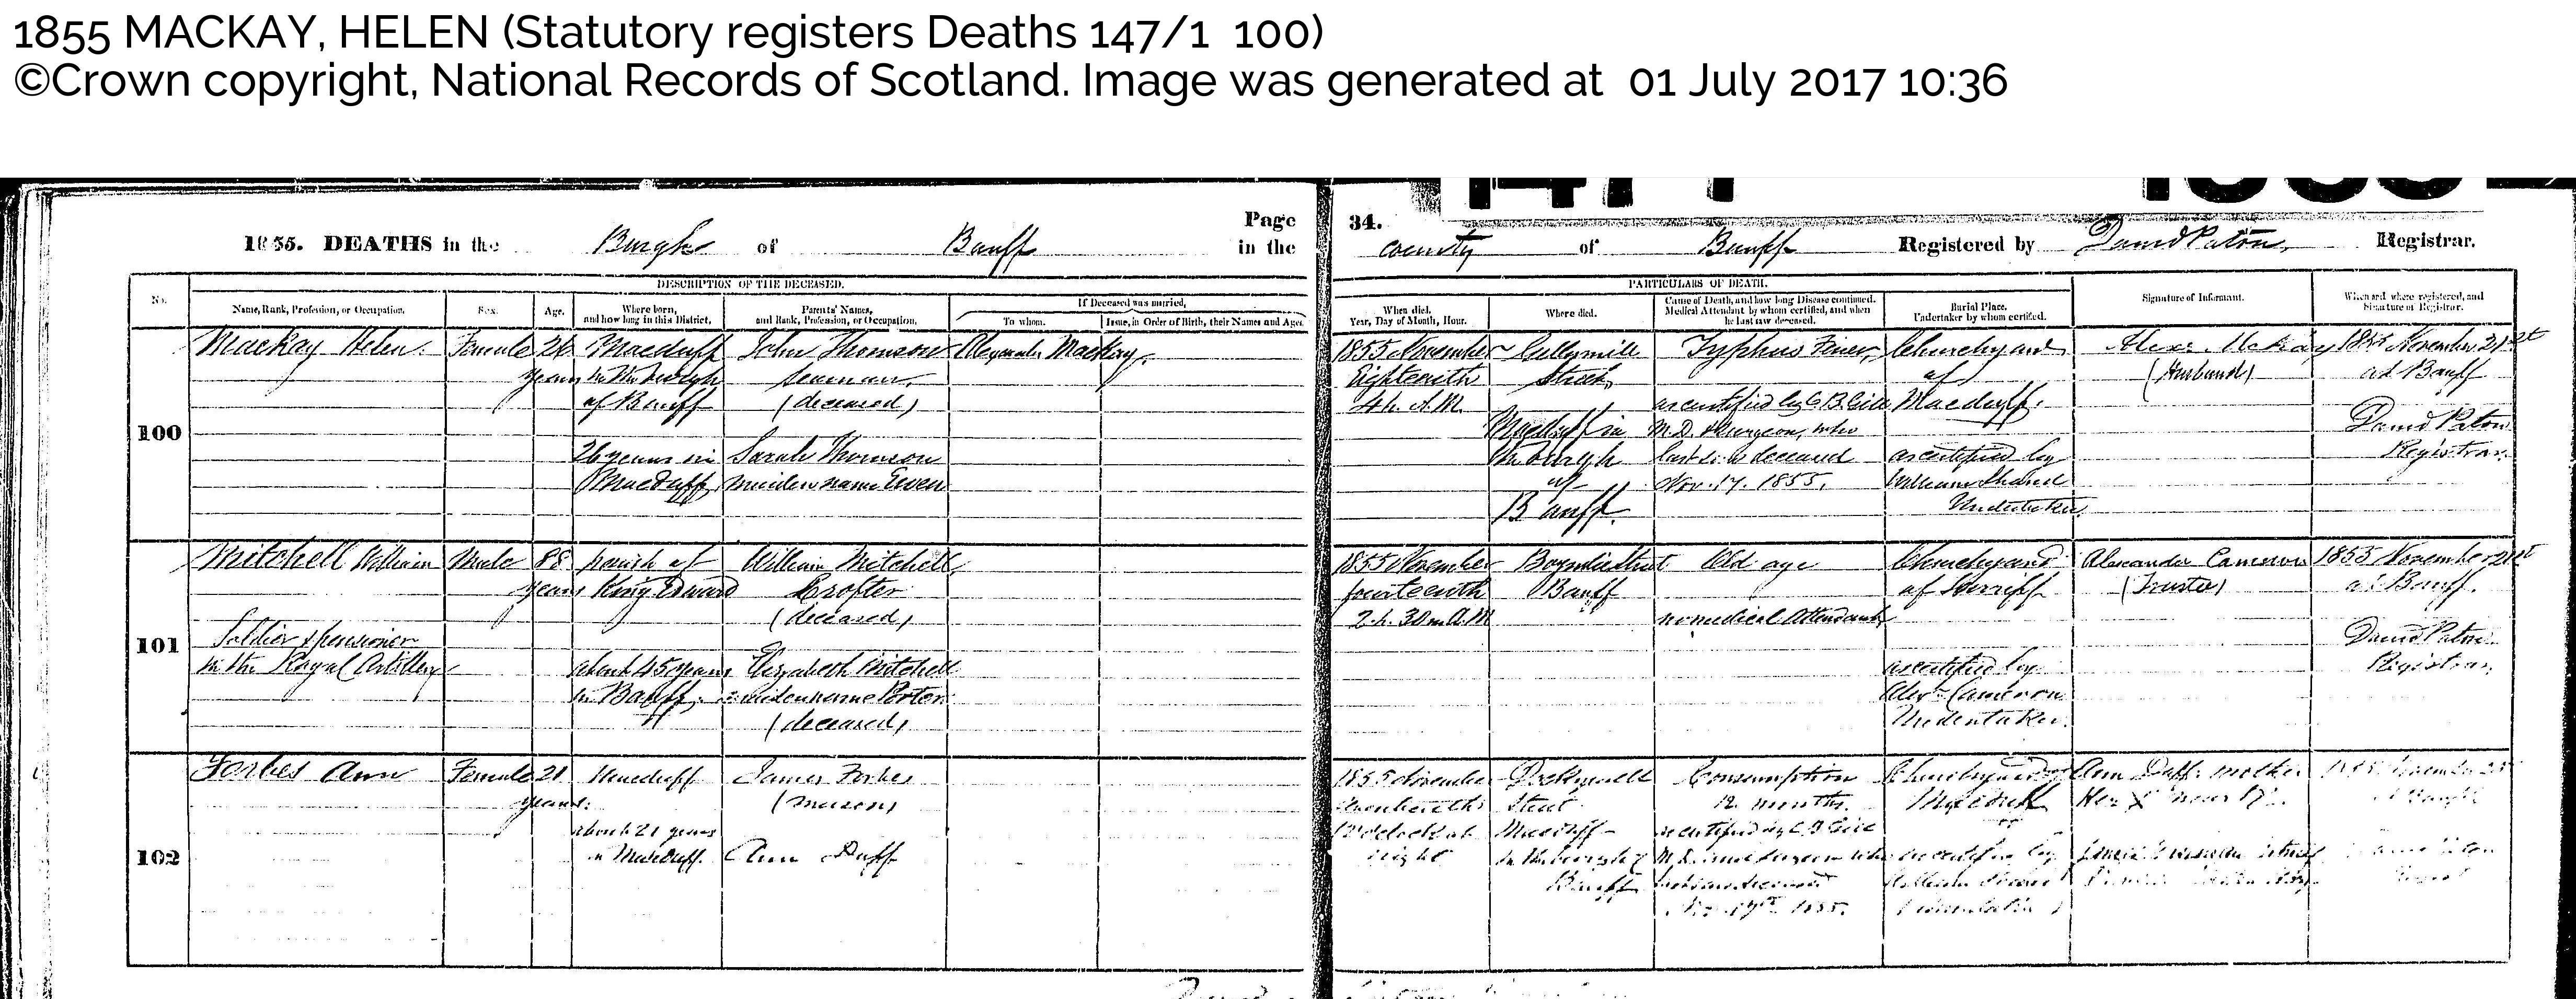 1855 MACKAY, HELEN (Statutory registers Deaths 147/1 100)
©Crown copyright, National Records of Scotland. Image was generated at 01 July 2017 10:36
1855. DEATHS in the Burgh of Banff
Page 34.
in the County of Banff Registered by David Paton, Registrar.
DESCRIPTION OF THE DECEASED.
PARTICULARS OF DEATH.
No.
Name, Rank, Profession, or Occupation.
Sex.
Age.
Where born,
and how long in this District.
Parents' Names,
and Rank, Profession, or Occupation.
If Deceased was married,
To whom.
Issue, in Order of Birth, their Names and Ages.
When died.
Year, Day of Month, Hour.
Where died.
Cause of Death, and how long Disease continued.
Medical Attendant by whom certified, and when
he last saw deceased.
Burial Place.
Undertaker by whom certified.
Signature of Informant.
When and where registered, and
Signature of Registrar.
100
Mackay Helen.
Female
26
years
Macduff
in the burgh
of Banff
26 years in
Macduff
John Thomson
Seaman,
(deceased)
Sarah Thomson
maiden name Ewen
Alexander Mackay.
1855 November
Eighteenth
4 h. A.M.
Street,
Macduff in
the burgh
of
Banff.
Typhus Fever,
as certified by
M.D. Surgeon, who
last saw deceased
Nov. 17. 1855.
Churchyard
of
Macduff.
as certified by
William
Undertaker.
Alexr. McKay
(Husband)
1855 November 21st
at Banff
David Paton
Registrar.
101
Mitchell William
Soldier & pensioner
in the Royal Artillery
Male
88
years
parish of
King Edward
about 45 years
in Banff,
William Mitchell,
Crofter
(deceased)
Elizabeth Mitchell
maiden name Porter
(deceased)
1855 November
fourteenth
2 h. 30 m A.M
Boyndie Street
Banff
Old age
no medical Attendant
Churchyard
of
as certified by
Alexr Cameron
Undertaker.
Alexander Cameron
(Trustee)
1855 November 21st
at Banff.
David Paton
Registrar.
102
Forbes Ann
Female
21
years.
Macduff
about 21 years
in Macduff.
James Forbes
(mason)
Ann Duff
1855 November
night
Street
Macduff
in the burgh of
Banff
Consumption
12 months.
as certified by
M.D. and Surgeon who
last saw deceased
1855.
Churchyard of
Macduff
as certified by
Ann Duff mother
Her X mark